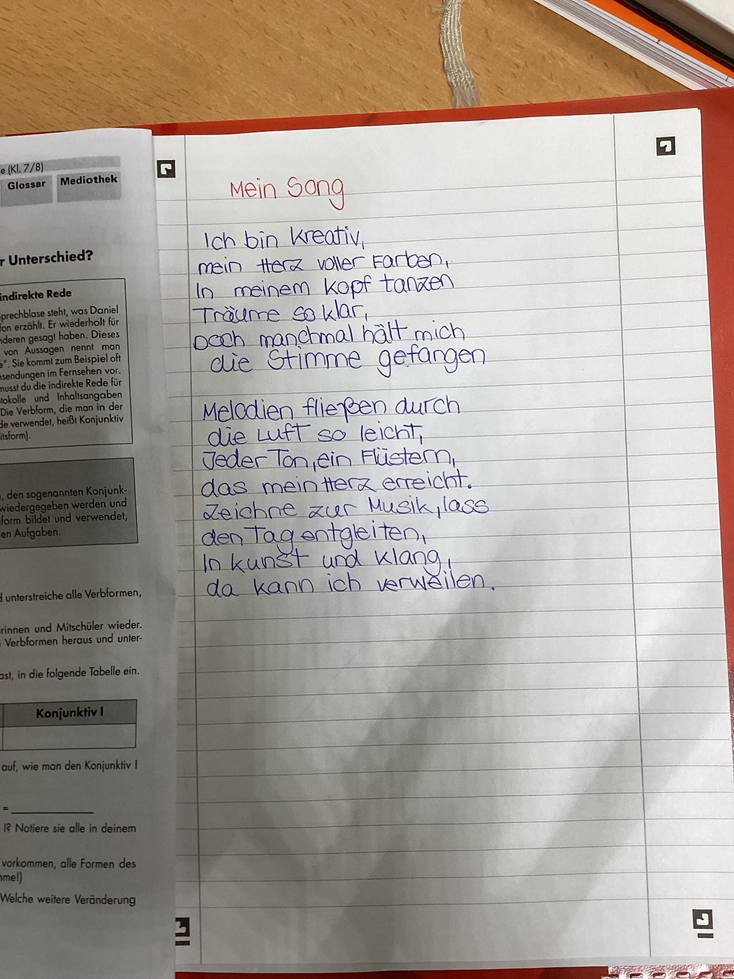 e (Kl. 7/8)
Glossar Mediothek
r Unterschied?
indirekte Rede
prechblase steht, was Daniel
fon erzählt. Er wiederholt für
nderen gesagt haben. Dieses
von Aussagen nennt man
e". Sie kommt zum Beispiel oft
nsendungen im Fernsehen vor.
musst du die indirekte Rede für
tokolle und Inhaltsangaben
Die Verbform, die man in der
de verwendet, heißt Konjunktiv
itsform).
, den sogenannten Konjunk-
wiedergegeben werden und
form bildet und verwendet,
en Aufgaben.
d unterstreiche alle Verbformen,
rinnen und Mitschüler wieder.
Verbformen heraus und unter-
ast, in die folgende Tabelle ein.
Konjunktiv I
auf, wie man den Konjunktiv I
=
I? Notiere sie alle in deinem
vorkommen, alle Formen des
me!)
Welche weitere Veränderung
Mein Song
Ich bin kreativ,
mein Herz voller Farben,
In meinem Kopf tanzen
Träume so klar,
Doch manchmal hält mich
die Stimme gefangen
Melodien fließen durch
die Luft so leicht,
Jeder Ton, ein Flüstern,
das mein Herz erreicht.
Zeichne zur Musik, lass
den Tag entgleiten,
In kunst und klang,
da kann ich verweilen.